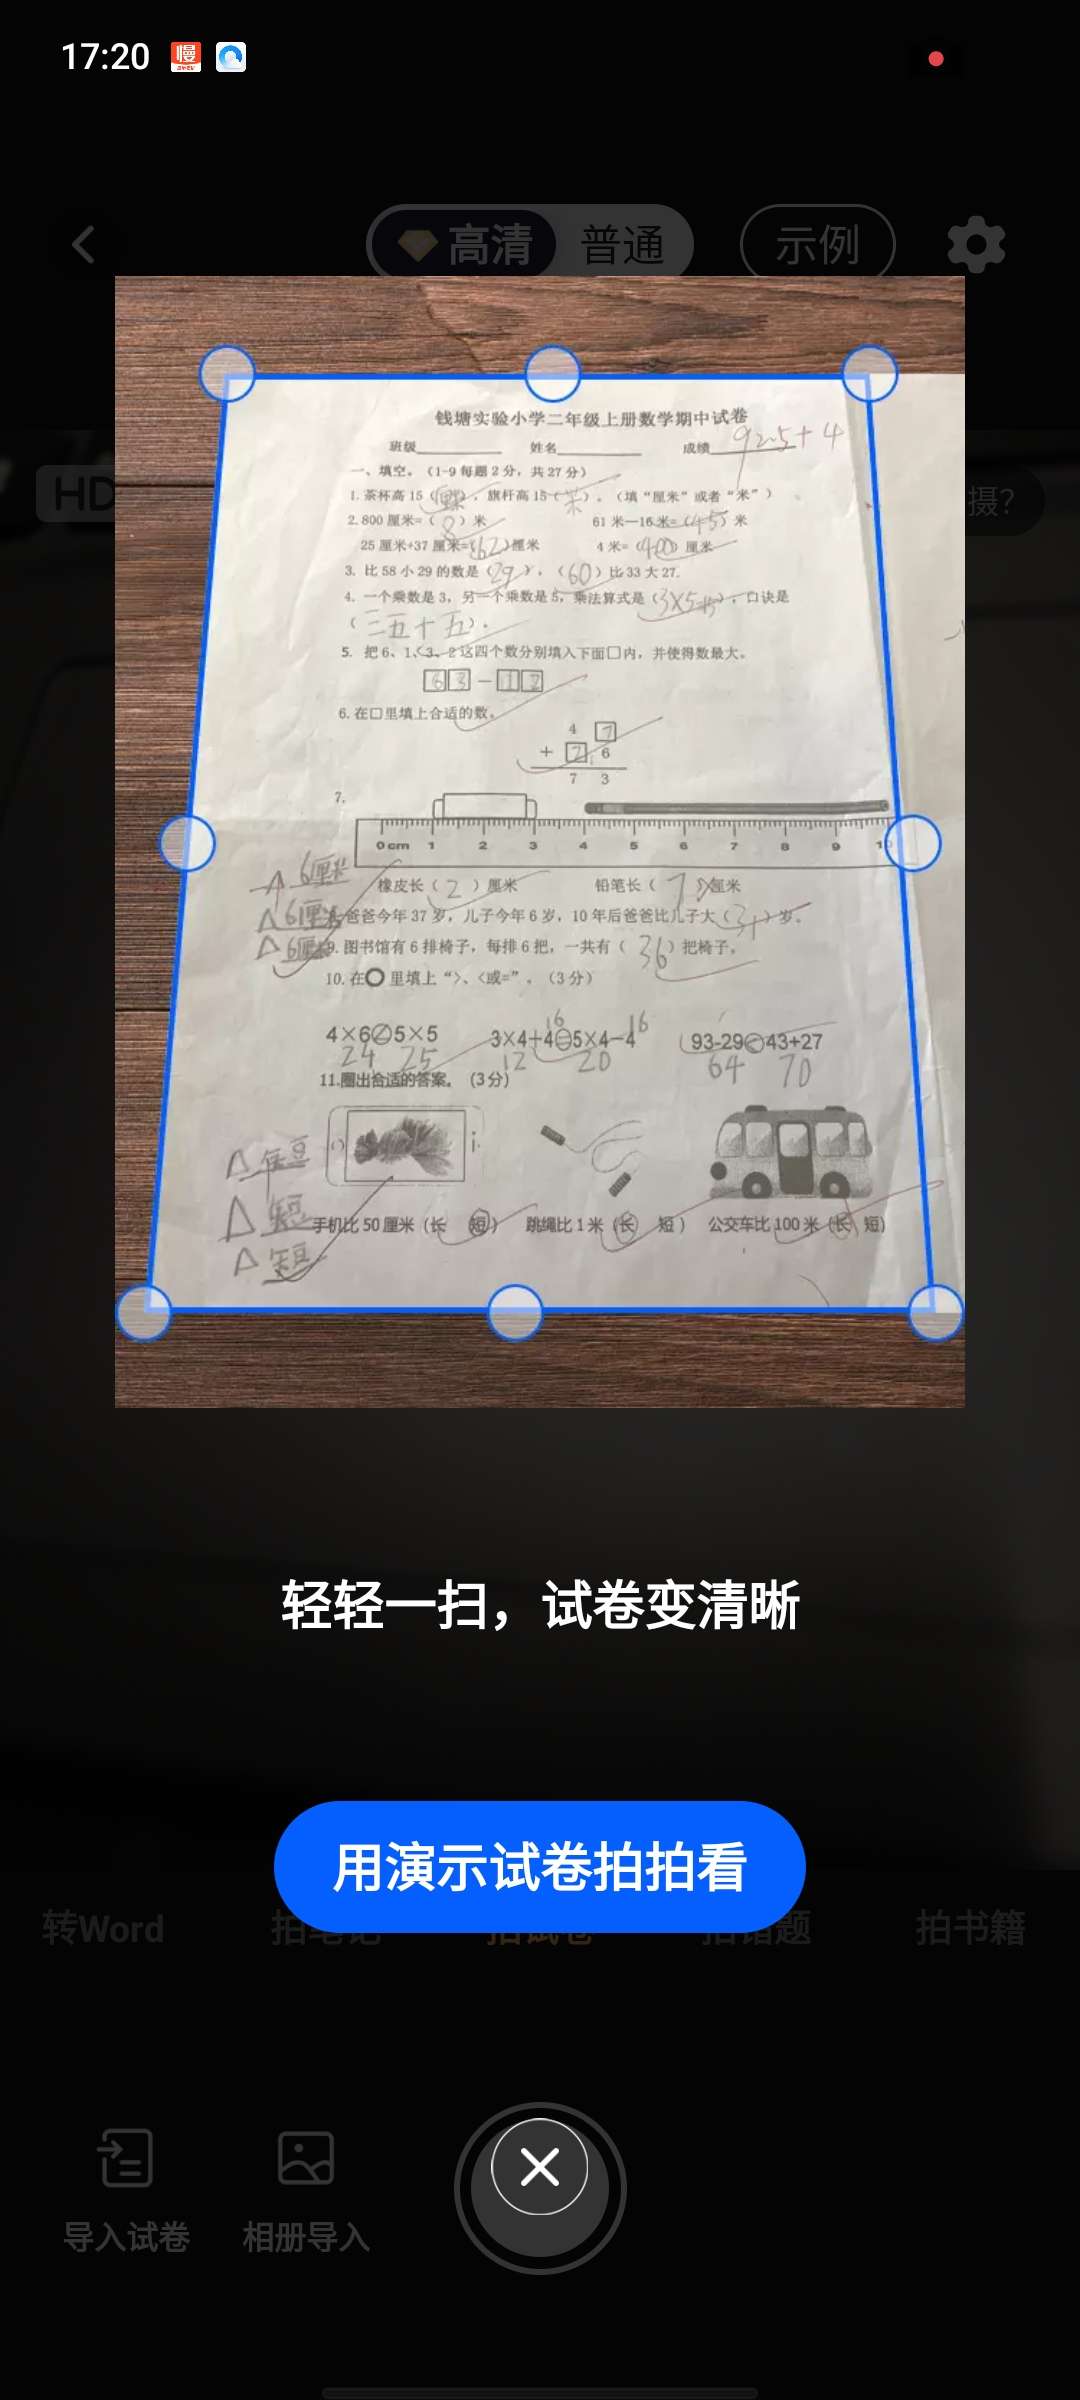 17:20
高清 普通 示例
HD
摄?
钱塘实验小学二年级上册数学期中试卷
班级 姓名 成绩 92.5+4
一、填空。(1-9每题2分,共27分)
1. 茶杯高15(厘米),旗杆高15(米)。(填“厘米”或者“米”)
2. 800厘米=(8)米 61米—16米=(45)米
25厘米+37厘米=(62)厘米 4米=(400)厘米
3. 比58小29的数是(29),(60)比33大27.
4. 一个乘数是3,另一个乘数是5,乘法算式是(3×5=15),口诀是
(三五十五)。
5. 把6、1、3、2这四个数分别填入下面□内,并使得数最大。
63-12
6. 在□里填上合适的数。
4 7
+ 2 6
7 3
7.
0cm 1 2 3 4 5 6 7 8 9 10
6厘米
橡皮长(2)厘米 铅笔长(7)厘米
6厘米
爸爸今年37岁,儿子今年6岁,10年后爸爸比儿子大(31)岁。
6厘米
9. 图书馆有6排椅子,每排6把,一共有(36)把椅子。
10. 在○里填上“>、<或=”。(3分)
16 16
4×6<5×5 3×4+4=5×4-4 93-29<43+27
24 25 12 20 64 70
11.圈出合适的答案。(3分)
短
短
手机比50厘米(长 短) 跳绳比1米(长 短) 公交车比100米(长 短)
短
轻轻一扫,试卷变清晰
用演示试卷拍拍看
转Word 拍笔记 拍试卷 拍错题 拍书籍
导入试卷 相册导入